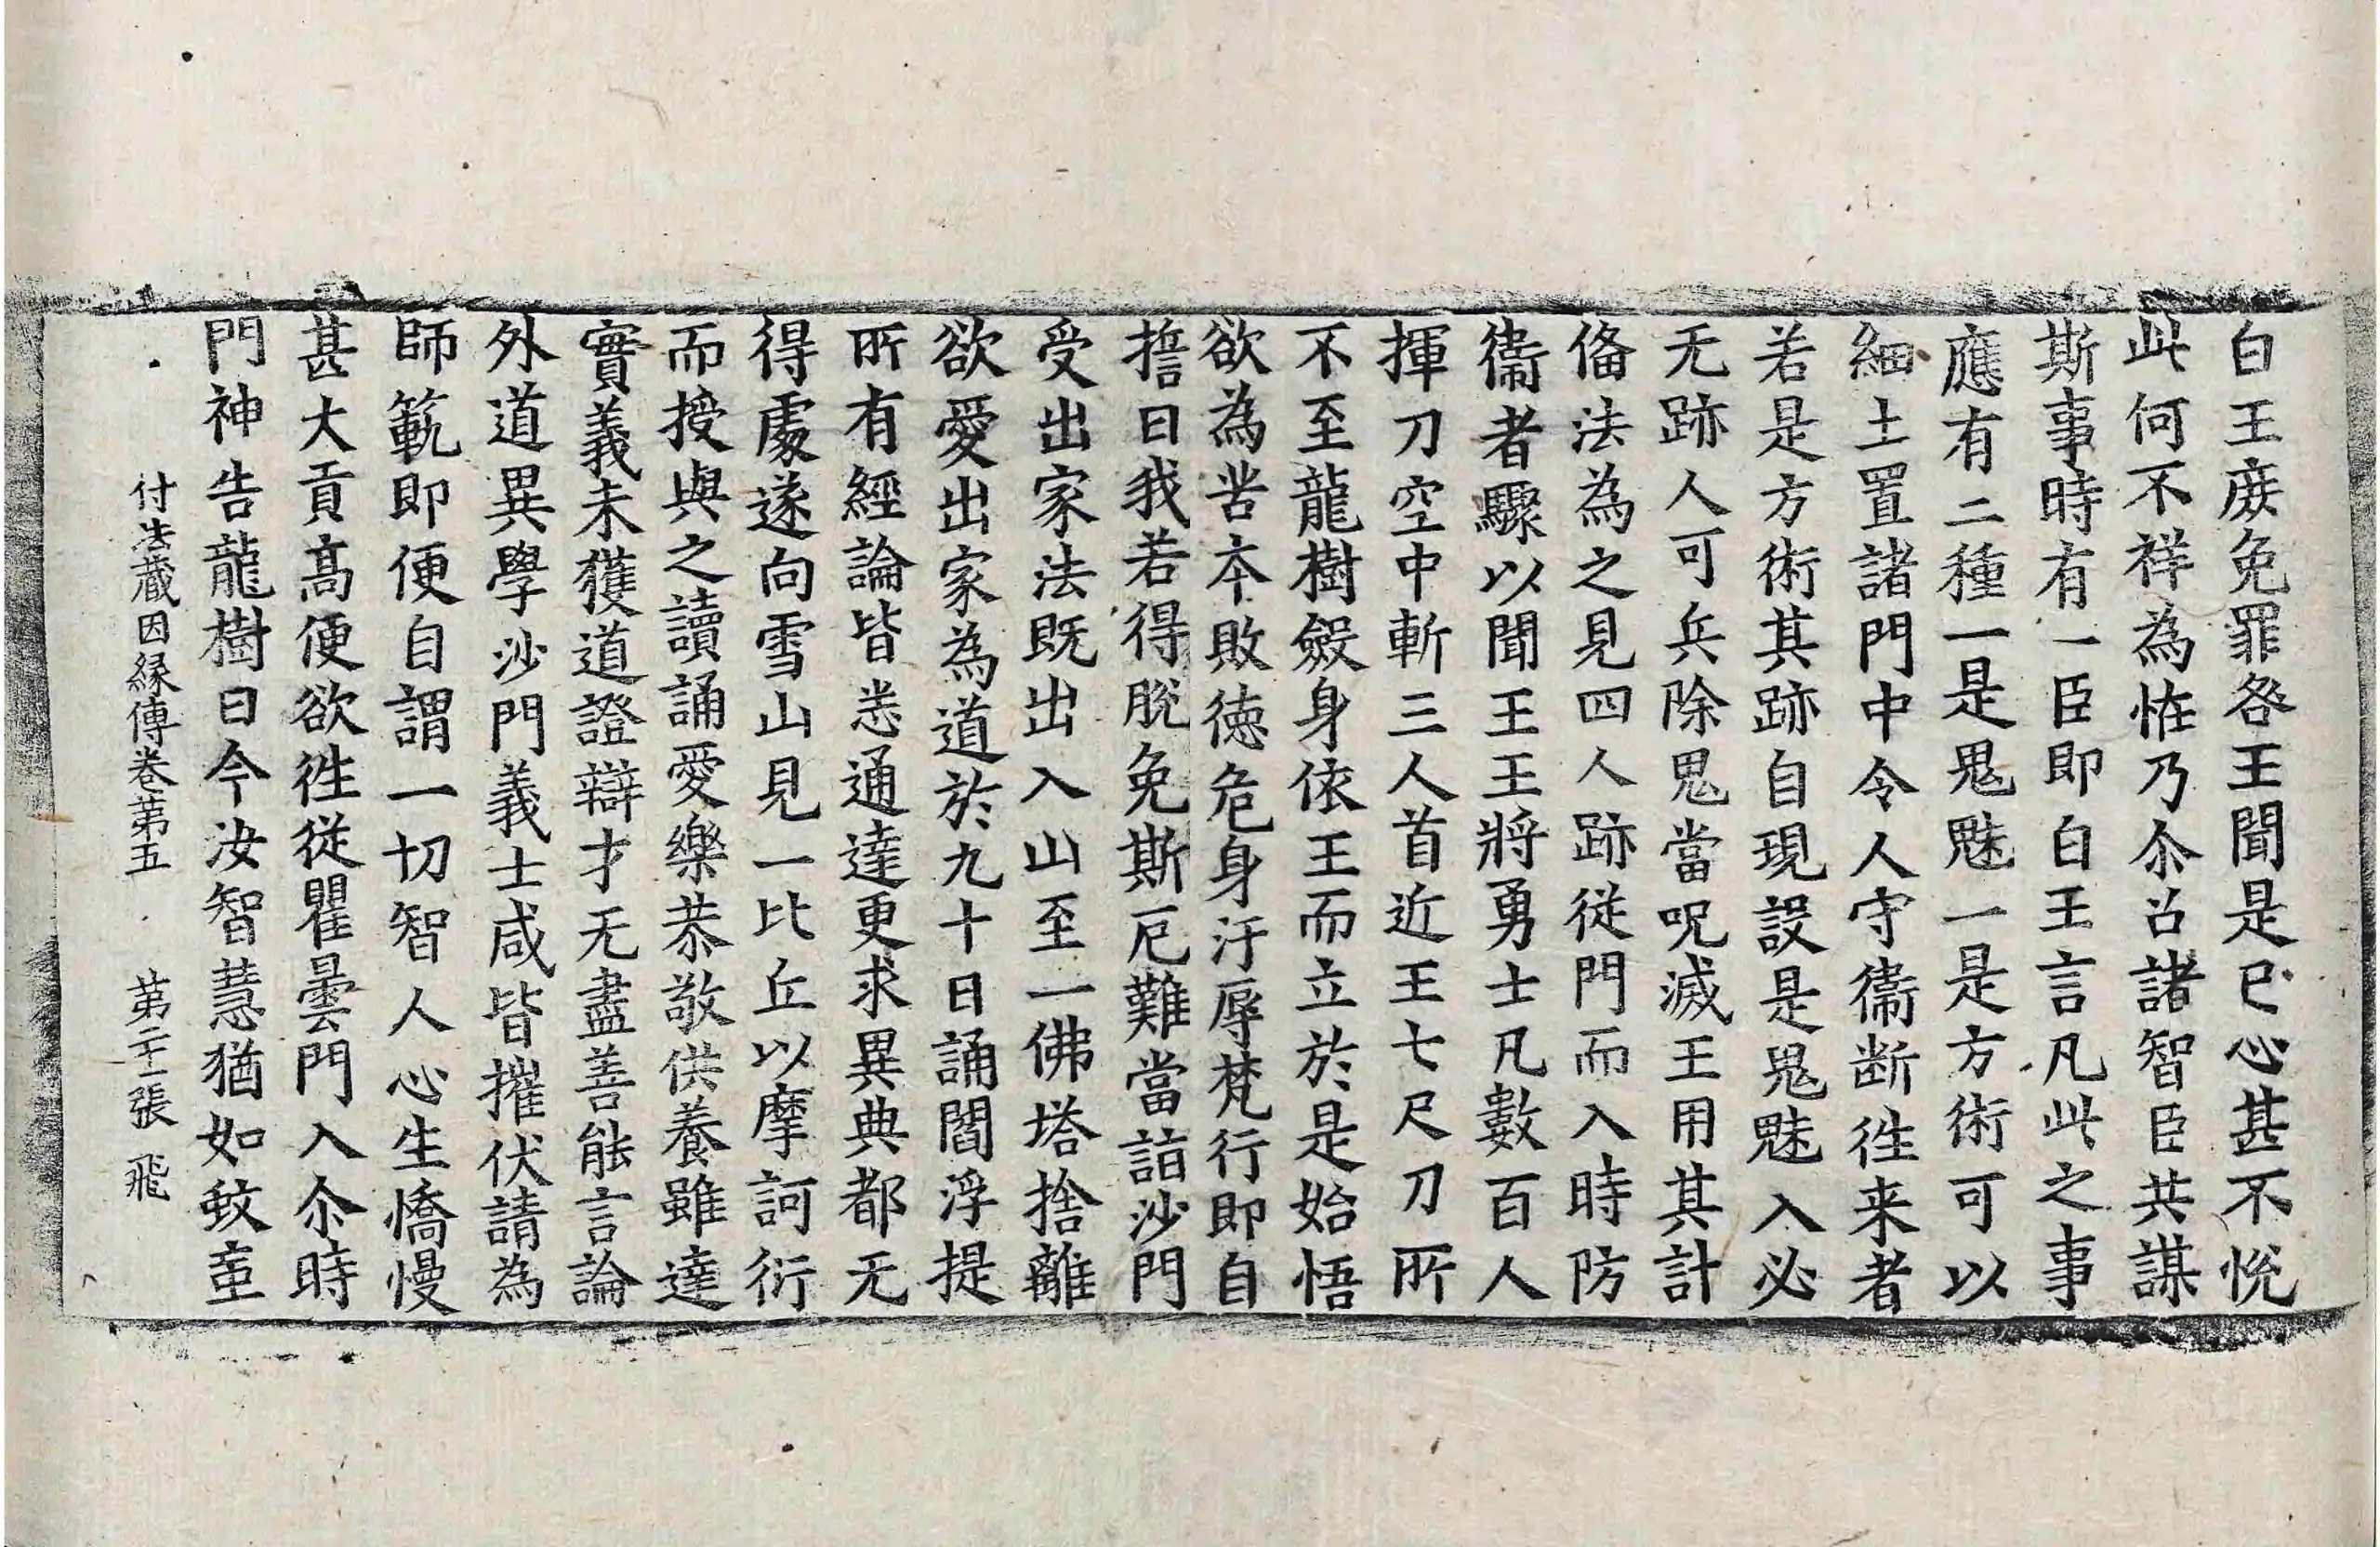 白王庻免罪咎王聞是已心甚不悅
此何不祥為恠乃尒召諸智臣共謀
斯事時有一臣即白王言凡此之事
應有二種一是鬼魅一是方術可以
細土置諸門中令人守衞断徃来者
若是方術其跡自現設是鬼魅入必
无跡人可兵除鬼當呪滅王用其計
俻法為之見四人跡從門而入時防
衞者驟以聞王王將勇士凡數百人
揮刀空中斬三人首近王七尺刀所
不至龍樹斂身依王而立於是始悟
欲為苦本敗徳危身汙辱梵行即自
擔曰我若得脫免斯厄難當詣沙門
受出家法既出入山至一佛塔捨離
欲愛出家為道於九十日誦閻浮提
所有經論皆悉通達更求異典都无
得處遂向雪山見一比丘以摩訶衍
而授與之讀誦愛樂恭敬供養雖達
實義未獲道證辯才无盡善能言論
外道異學沙門義士咸皆摧伏請為
師範即便自謂一切智人心生憍慢
甚大貢高便欲徃從瞿曇門入尒時
門神告龍樹曰今汝智慧猶如蚊䖟
付法藏因縁傳卷苐五 苐二十一張 飛